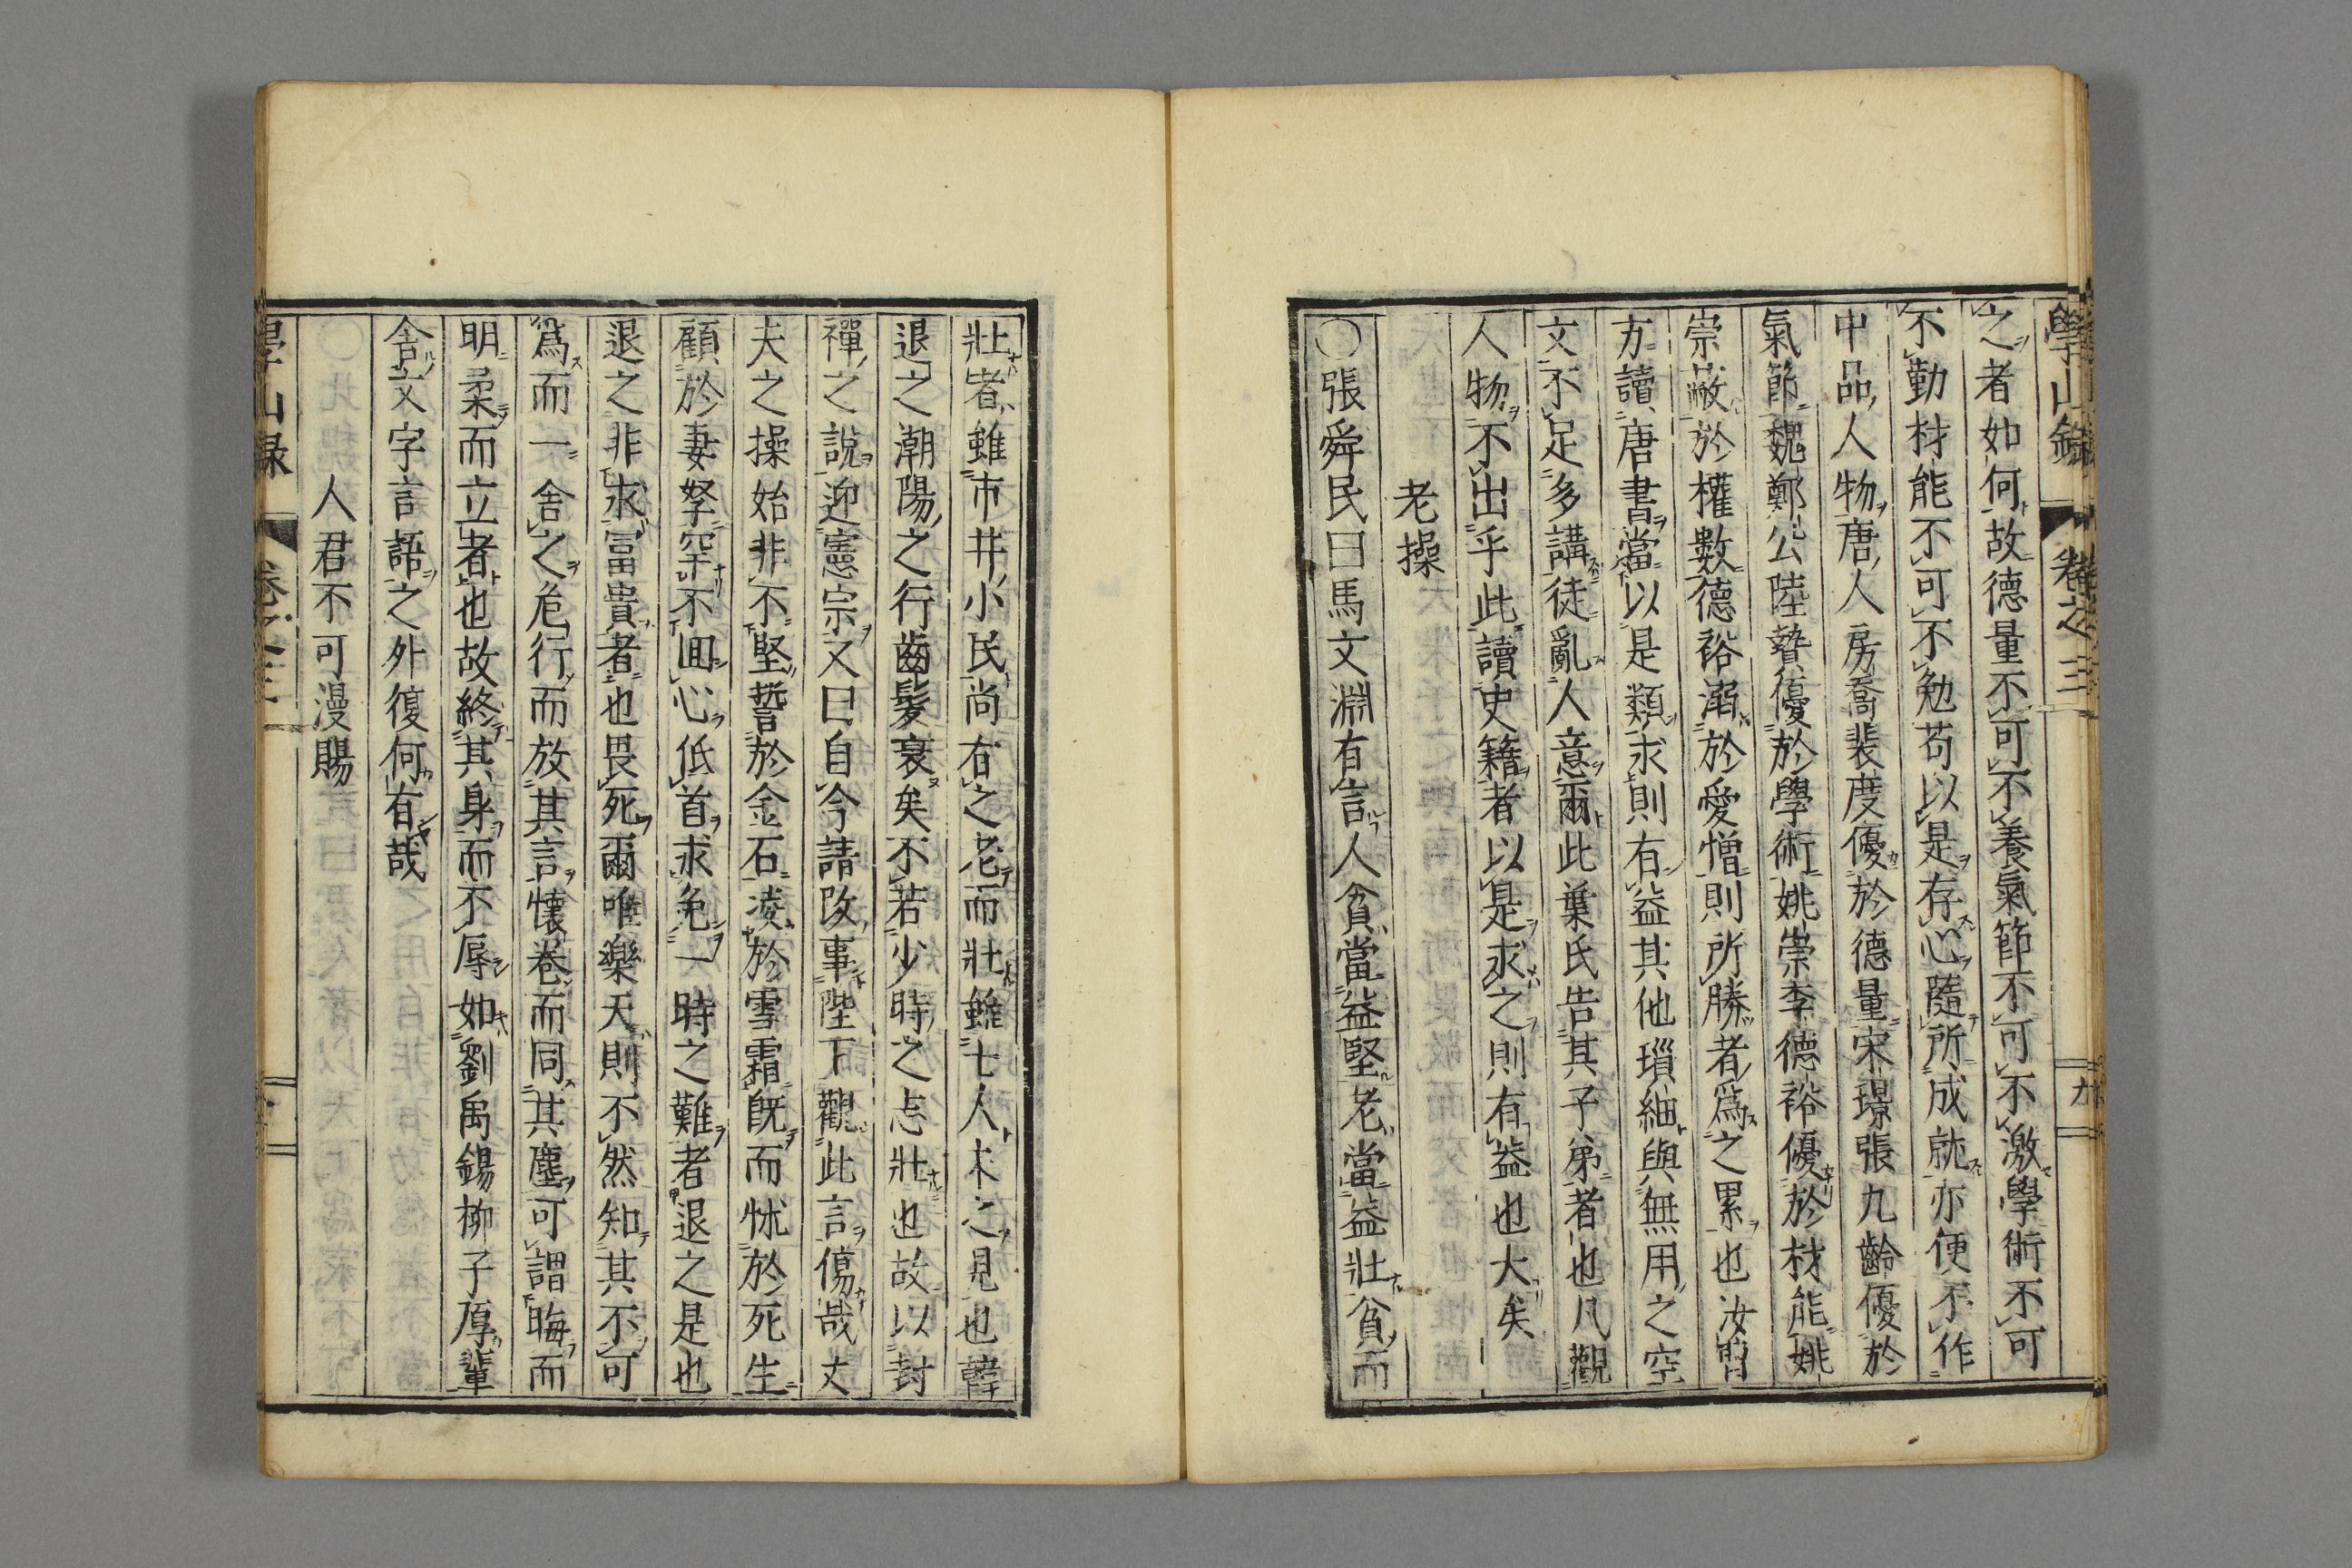 學山錄 卷之三 九
之者如何故德量不可不養氣節不可不激學術不可
不勤材能不可不勉苟以是存心隨所成就亦便不作
中品人物唐人房喬裴度優於德量宋璟張九齡優於
氣節魏鄭公陸贄優於學術姚崇李德裕優於材能姚
崇蔽於權數德裕溺於愛憎則所勝者爲之累也汝曹
方讀唐書當以是類求則有益其他瑣細與無用之空
文不足多講徒亂人意爾此葉氏告其子弟者也凡觀
人物不出乎此讀史籍者以是求之則有益也大矣
老操
〇張舜民曰馬文淵有言人貧當益堅老當益壯貧而
壯者雖市井小民尚有之老而壯雖士人未之見也韓
退之潮陽之行齒髮衰矣不若少時之志壯也故以封
禪之說迎憲宗又曰自今請改事陛下觀此言傷哉丈
夫之操始非不堅誓於金石凌於雪霜既而怵於死生
顧於妻孥罕不回心低首求免一時之難者退之是也
退之非求冨貴者也畏死爾唯樂天則不然知其不可
爲而一舍之危行而放其言懷卷而同其塵可謂晦而
明柔而立者也故終其身而不辱如劉禹錫柳子厚輩
舍文字言語之外復何有哉
人君不可漫賜
學山錄 卷之三